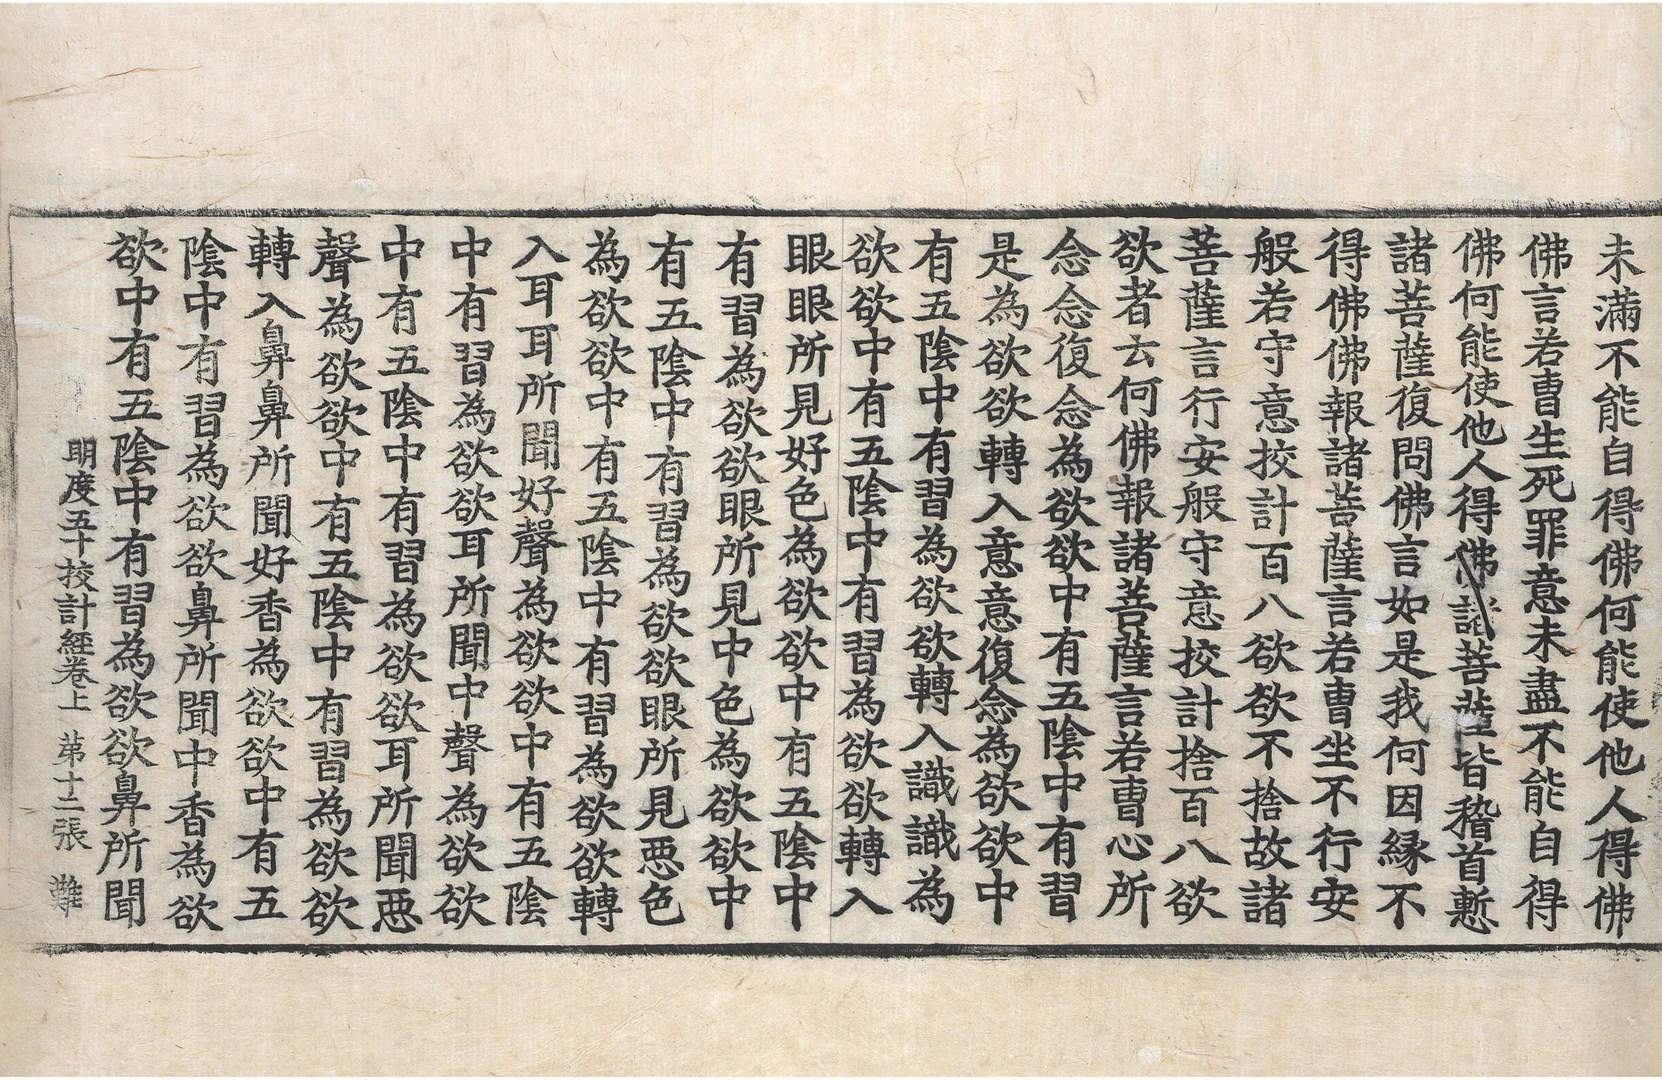 未滿不能自得佛何能使他人得佛
佛言若曹生死罪意未盡不能自得
佛何能使他人得佛諸菩薩皆稽首慙
諸菩薩復問佛言如是我何因縁不
得佛佛報諸菩薩言若曹坐不行安
般若守意挍計百八欲欲不捨故諸
菩薩言行安般守意挍計捨百八欲
欲者云何佛報諸菩薩言若曹心所
念念復念為欲欲中有五陰中有習
是為欲欲轉入意意復念為欲欲中
有五陰中有習為欲欲轉入識識為
欲欲中有五陰中有習為欲欲轉入
眼眼所見好色為欲欲中有五陰中
有習為欲欲眼所見中色為欲欲中
有五陰中有習為欲欲眼所見惡色
為欲欲中有五陰中有習為欲欲轉
入耳耳所聞好聲為欲欲中有五陰
中有習為欲欲耳所聞中聲為欲欲
中有五陰中有習為欲欲耳所聞惡
聲為欲欲中有五陰中有習為欲欲
轉入鼻鼻所聞好香為欲欲中有五
陰中有習為欲欲鼻所聞中香為欲
欲中有五陰中有習為欲欲鼻所聞
明度五十挍計經卷上 苐十二張 難